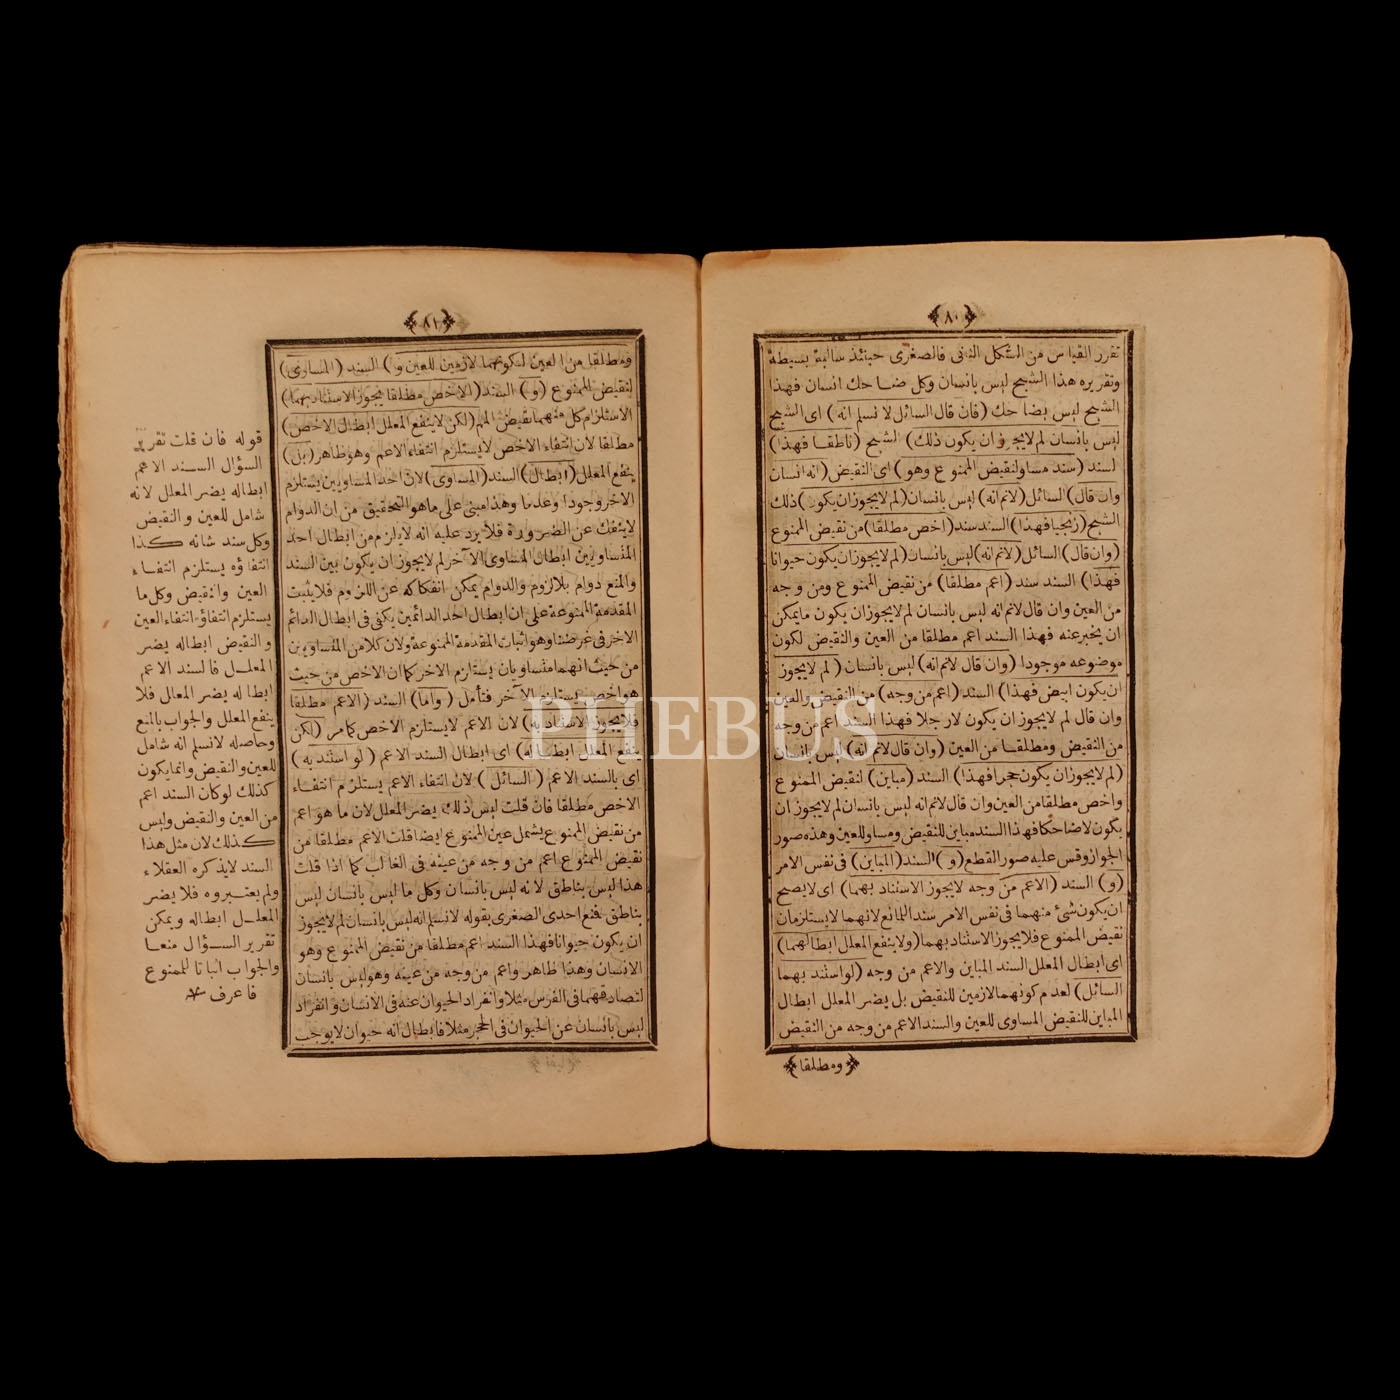 ٨٠
تقرر القياس من الشكل الثانى فالصغرى حينئذ سالبة بسيطة
وتقريره هذا الشبح ليس بانسان وكل ضاحك انسان فهذا
الشبح ليس بضاحك (فان قال السائل لا نسلم انه) اى الشبح
ليس بانسان لم لا يجوز ان يكون ذلك) الشبح (ناطقا فهذا)
السند (سند مساو لنقيض الممنوع وهو) اى النقيض (انه انسان
وان قال) السائل (لانم انه) ليس بانسان (لم لا يجوز ان يكون) ذلك
الشبح (زنجيا فهذا) السند سند (اخص مطلقا) من نقيض الممنوع
(وان قال) السائل (لانم انه) ليس بانسان (لم لا يجوز ان يكون حيوانا
فهذا) السند سند (اعم مطلقا) من نقيض الممنوع ومن وجه
من العين وان قال لانم انه ليس بانسان لم لا يجوز ان يكون ما يمكن
ان يخبر عنه فهذا السند اعم مطلقا من العين والنقيض لكون
موضوعه موجودا (وان قال لانم انه) ليس بانسان (لم لا يجوز
ان يكون ابيض فهذا) السند (اعم من وجه) من النقيض والعين
وان قال لم لا يجوز ان يكون لا رجلا فهذا السند اعم من وجه
من النقيض ومطلقا من العين (وان قال لانم انه) ليس بانسان
(لم لا يجوز ان يكون حجرا فهذا) السند (مباين) لنقيض الممنوع
واخص مطلقا من العين وان قال لانم انه ليس بانسان لم لا يجوز ان
يكون لا ضاحكا فهذا السند مباين للنقيض ومساو للعين وهذه صور
الجواز وقس عليه صور القطع (و) السند (المباين) فى نفس الامر
(و) السند (الاعم من وجه لا يجوز الاستناد بهما) اى لا يصح
ان يكون شئ منهما فى نفس الامر سند المانع لانهما لا يستلزمان
نقيض الممنوع فلا يجوز الاستناد بهما (ولا ينفع المعلل ابطالهما)
اى ابطال المعلل السند المباين والاعم من وجه (لو استند بهما
السائل) لعدم كونهما لازمين للنقيض بل يضر المعلل ابطال
المباين للنقيض المساوى للعين والسند الاعم من وجه من النقيض
ومطلقا
٨١
ومطلقا من العين لكونهما لازمين للعين (و) السند (المساوى)
لنقيض الممنوع (و) السند (الاخص مطلقا يجوز الاستناد بهما)
لاستلزام كل منهما نقيض المم (لكن لا ينفع المعلل ابطال الاخص)
مطلقا لان انتفاء الاخص لا يستلزم انتفاء الاعم وهو ظاهر (بل)
ينفع المعلل (ابطال) السند (المساوى) لان احد المتساويين يستلزم
الاخر وجودا وعدما وهذا مبنى على ما هو التحقيق من ان الدوام
لا ينفك عن الضرورة فلا يرد عليه انه لا يلزم من ابطال احد
المتساويين ابطال المساوى الآخر لم لا يجوز ان يكون بين السند
والمنع دوام بلا لزوم والدوام يمكن انفكاكه عن اللزوم فلا يثبت
المقدمة الممنوعة على ان ابطال احد الدائمين يكفى فى ابطال الدائم
الاخر فى غرضنا وهو اثبات المقدمة الممنوعة ولان كلا من المتساويين
من حيث انهما متساويان يستلزم الاخر كما ان الاخص من حيث
هو اخص يستلزم الآخر فتأمل (واما) السند (الاعم مطلقا
فلا يجوز الاستناد به) لان الاعم لا يستلزم الاخص كما مر (لكن
ينفع المعلل ابطاله) اى ابطال السند الاعم (لو استند به)
اى بالسند الاعم (السائل) لان انتفاء الاعم يستلزم انتفاء
الاخص مطلقا فان قلت ليس ذلك يضر المعلل لان ما هو اعم
من نقيض الممنوع يشمل عين الممنوع ايضا قلت الاعم مطلقا من
نقيض الممنوع اعم من وجه من عينه فى الغالب كما اذا قلت
هذا ليس بناطق لانه ليس بانسان وكل ما ليس بانسان ليس
بناطق فمنع احدى الصغرى بقوله لا نسلم انه ليس بانسان لم لا يجوز
ان يكون حيوانا فهذا السند اعم مطلقا من نقيض الممنوع وهو
الانسان وهذا ظاهر واعم من وجه من عينه وهو ليس بانسان
لتصادقهما فى الفرس مثلا وانفراد الحيوان عنه فى الانسان وانفراد
ليس بانسان عن الحيوان فى الحجر مثلا فابطال انه حيوان لا يوجب
قوله فان قلت تقرير
السؤال السند الاعم
ابطاله يضر المعلل لانه
شامل للعين والنقيض
وكل سند شانه كذا
انتفاؤه يستلزم انتفاء
العين والنقيض وكل ما
يستلزم انتفاؤه انتفاء العين
والنقيض ابطاله يضر
المعلل فالسند الاعم
ابطاله يضر المعلل فلا
ينفع المعلل والجواب بالمنع
وحاصله لا نسلم انه شامل
للعين والنقيض وانما يكون
كذلك لو كان السند اعم
من العين والنقيض وليس
كذلك لان مثل هذا
السند لا يذكره العقلاء
ولم يعتبروه فلا يضر
المعلل ابطاله ويمكن
تقرير السؤال منعا
والجواب اثباتا للممنوع
فاعرف
PHEBUS